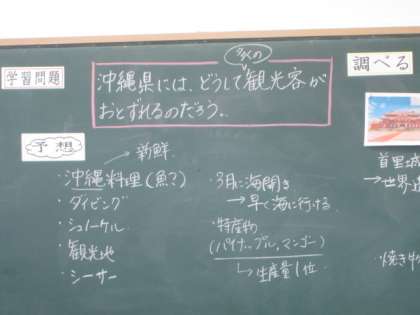 学習問題
多くの
沖縄県には、どうして観光客が
おとずれるのだろう。
調べる
予想
新鮮
・沖縄料理(魚?)
・ダイビング
・シュノーケル
・観光地
・シーサー
・3月に海開き
→早く海に行ける。
・特産物
(パイナップル,マンゴー)
→生産量1位
首里城
→世界遺
・焼き物